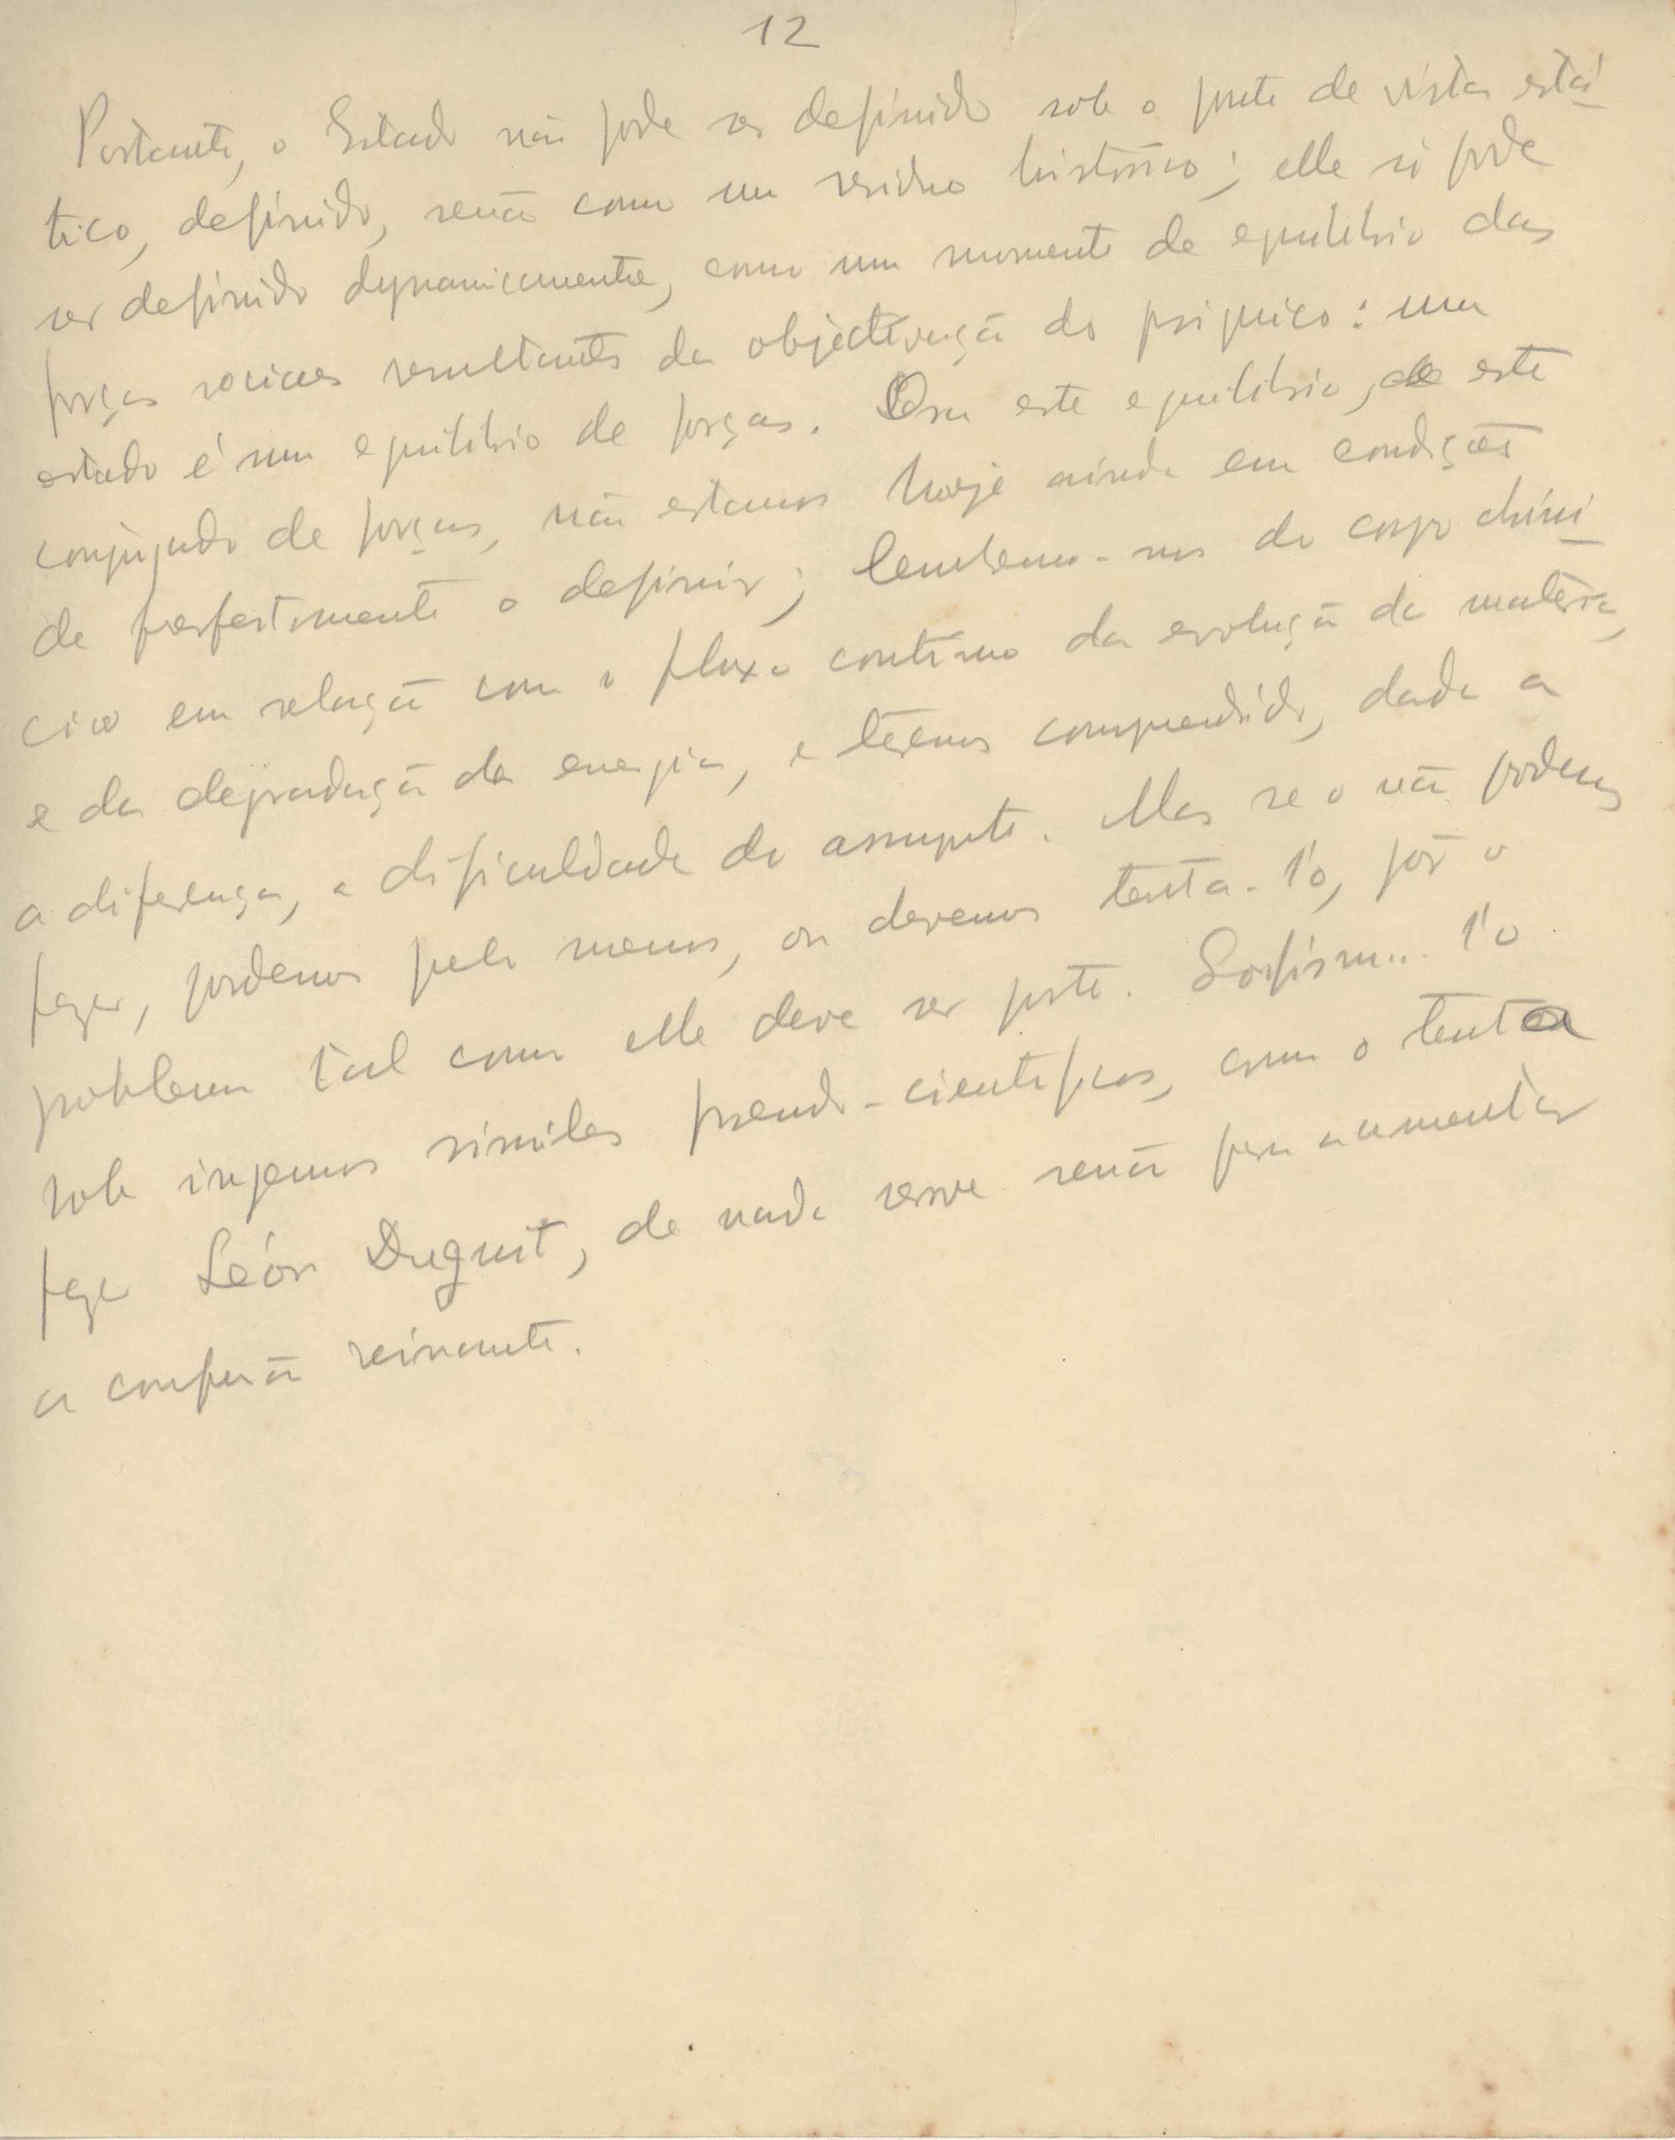 12
Portanto, o Estado não pode ser definido sob o ponto de vista está-
tico, definido, senão como um residuo historico; elle só pode
ser definido dynamicamente, como um momento de equilibrio das
forças sociaes resultantes da objectivação do psiquico: um
estado é um equilibrio de forças. Ora este equilibrio, este
conjugado de forças, não estamos hoje ainda em condições
de perfeitamente o definir; lembremo-nos do corpo chimi-
cico em relação com o fluxo continuo da evolução da materia,
e da degradação da energia, e teremos comprendido, dada a
a diferença, a dificuldade do assumpto. Mas se o não podemos
fazer, podemos pelo menos, ou devemos tenta-l'o, pôr o
problema tal como elle deve ser posto. l'o
sob ingenuos similes pseudo-cientificos, como o tenta
fazer León Duguit, de nada serve senão para aumentar
a confusão reinante.